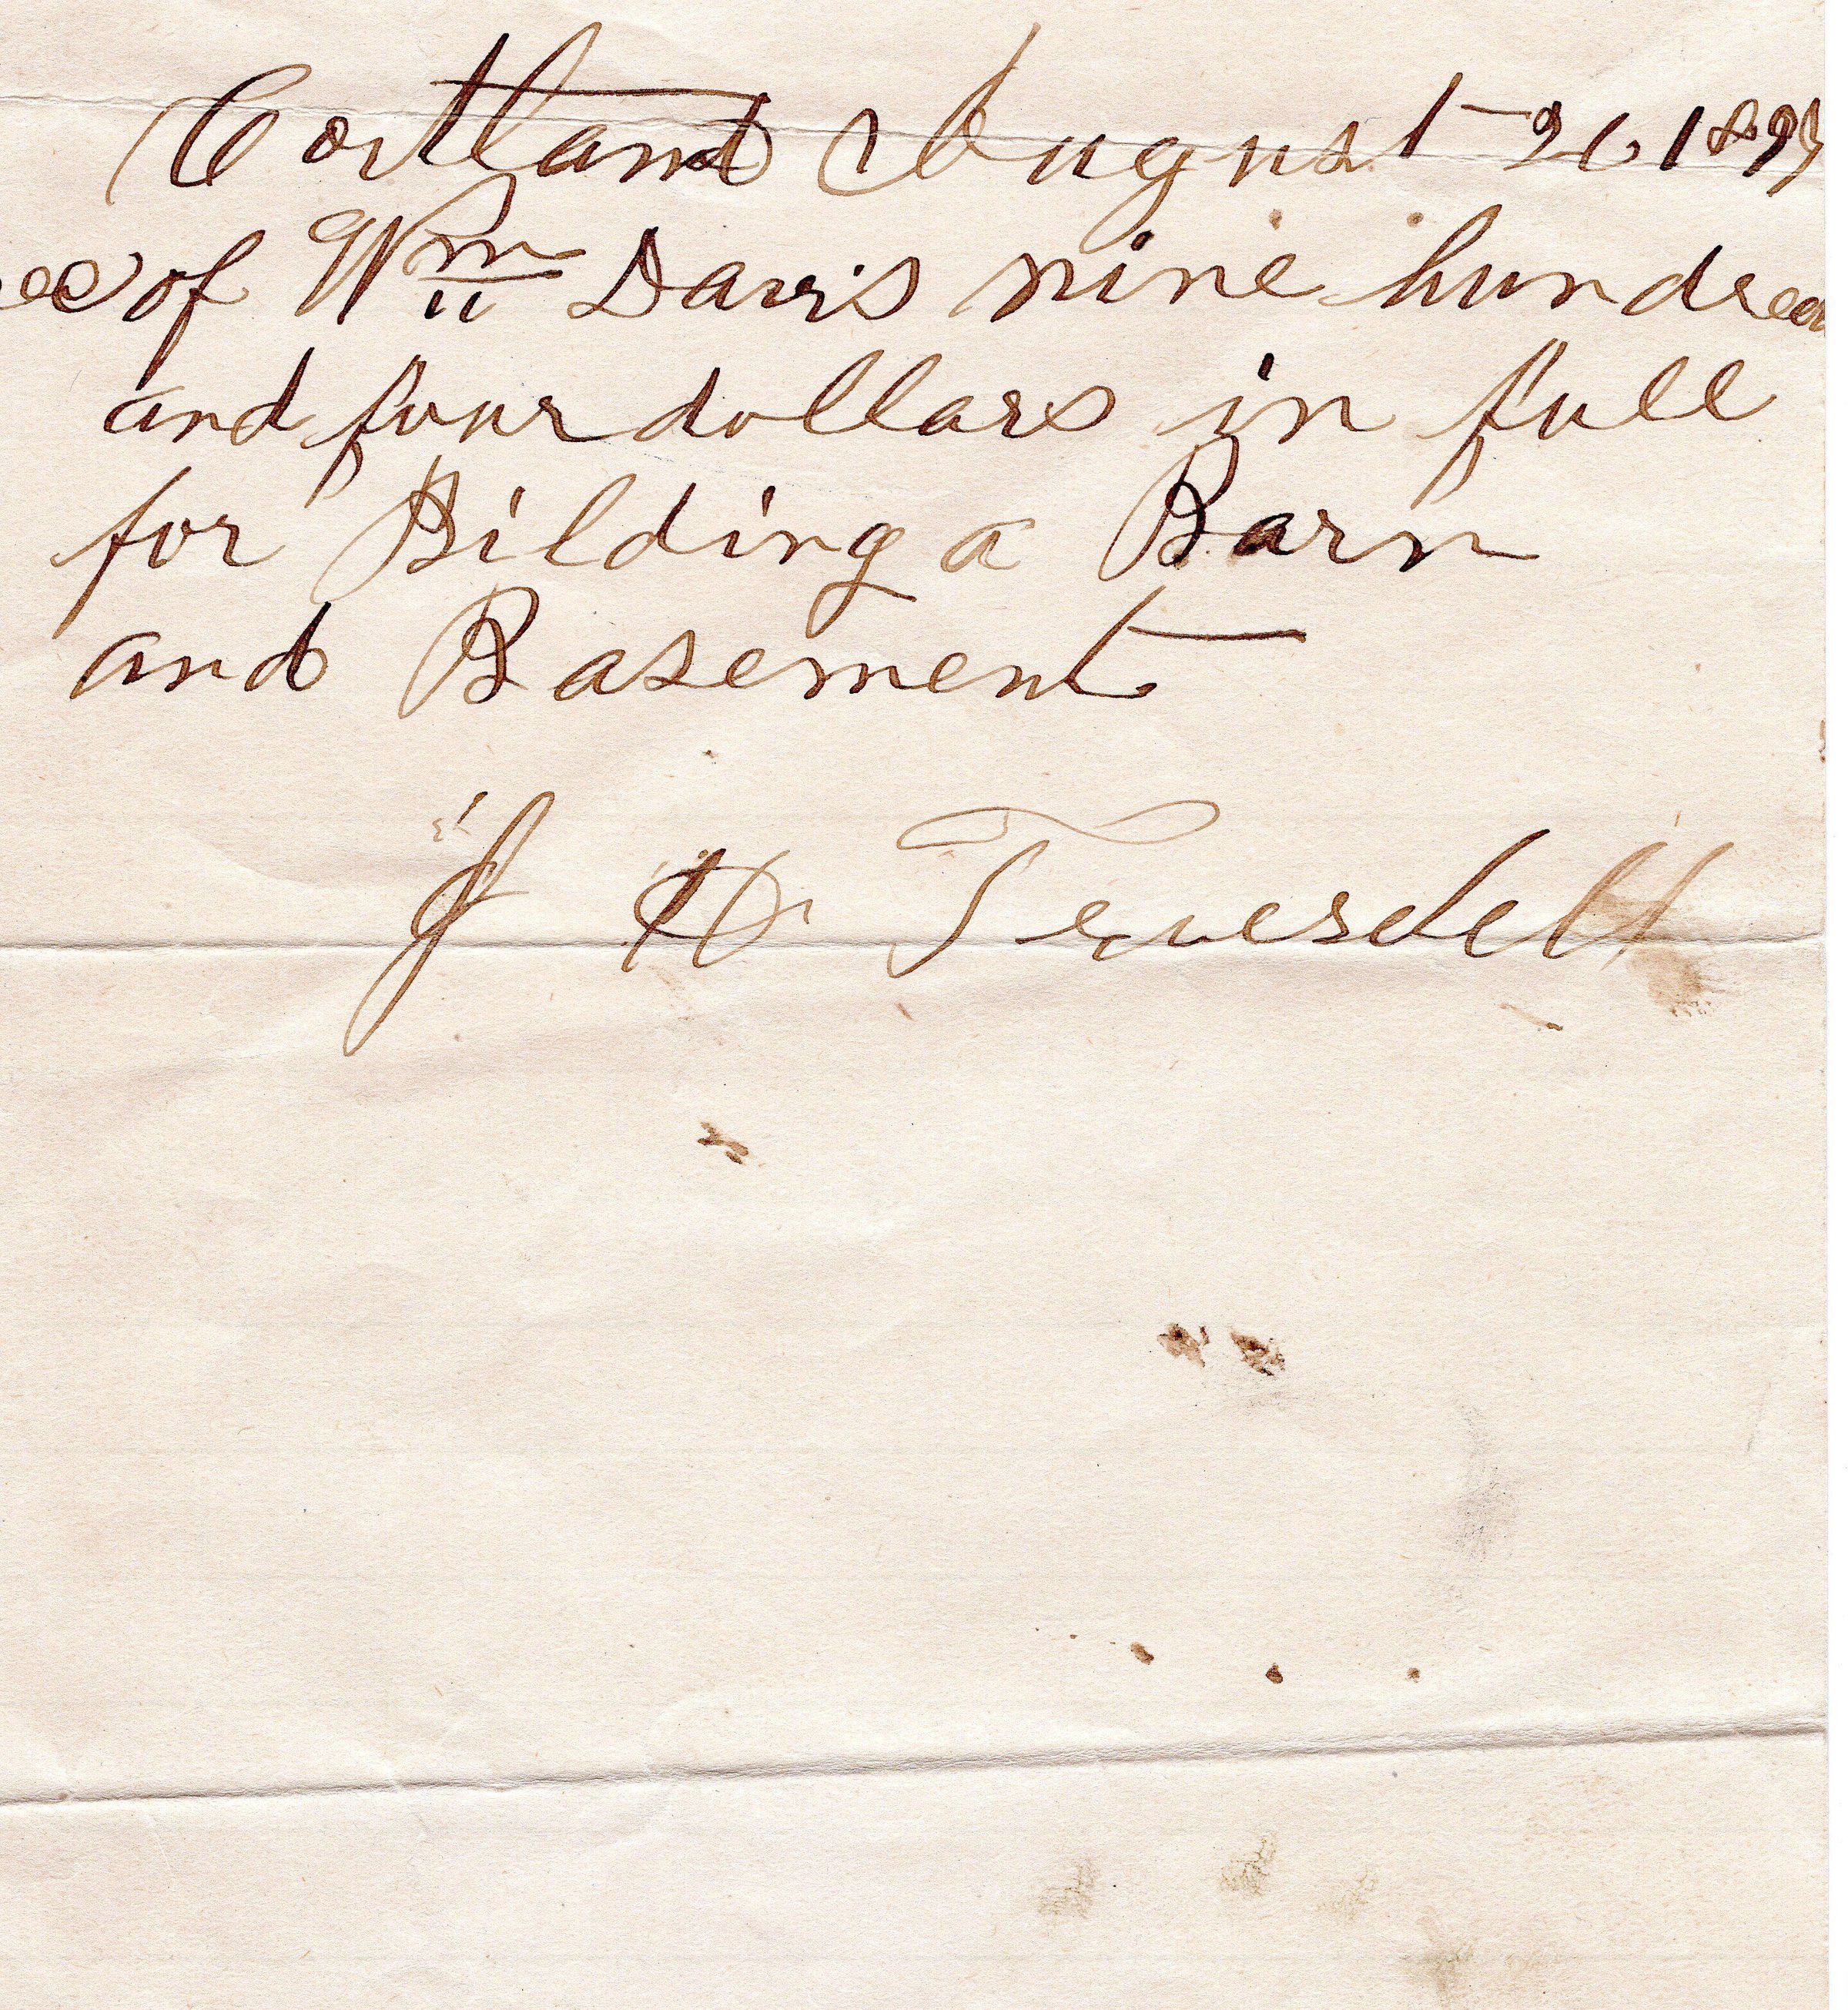 Cortland August 26 189
of Wm Davis nine hundred
and four dollars in full
for Bilding a Barn
and Basement
J H